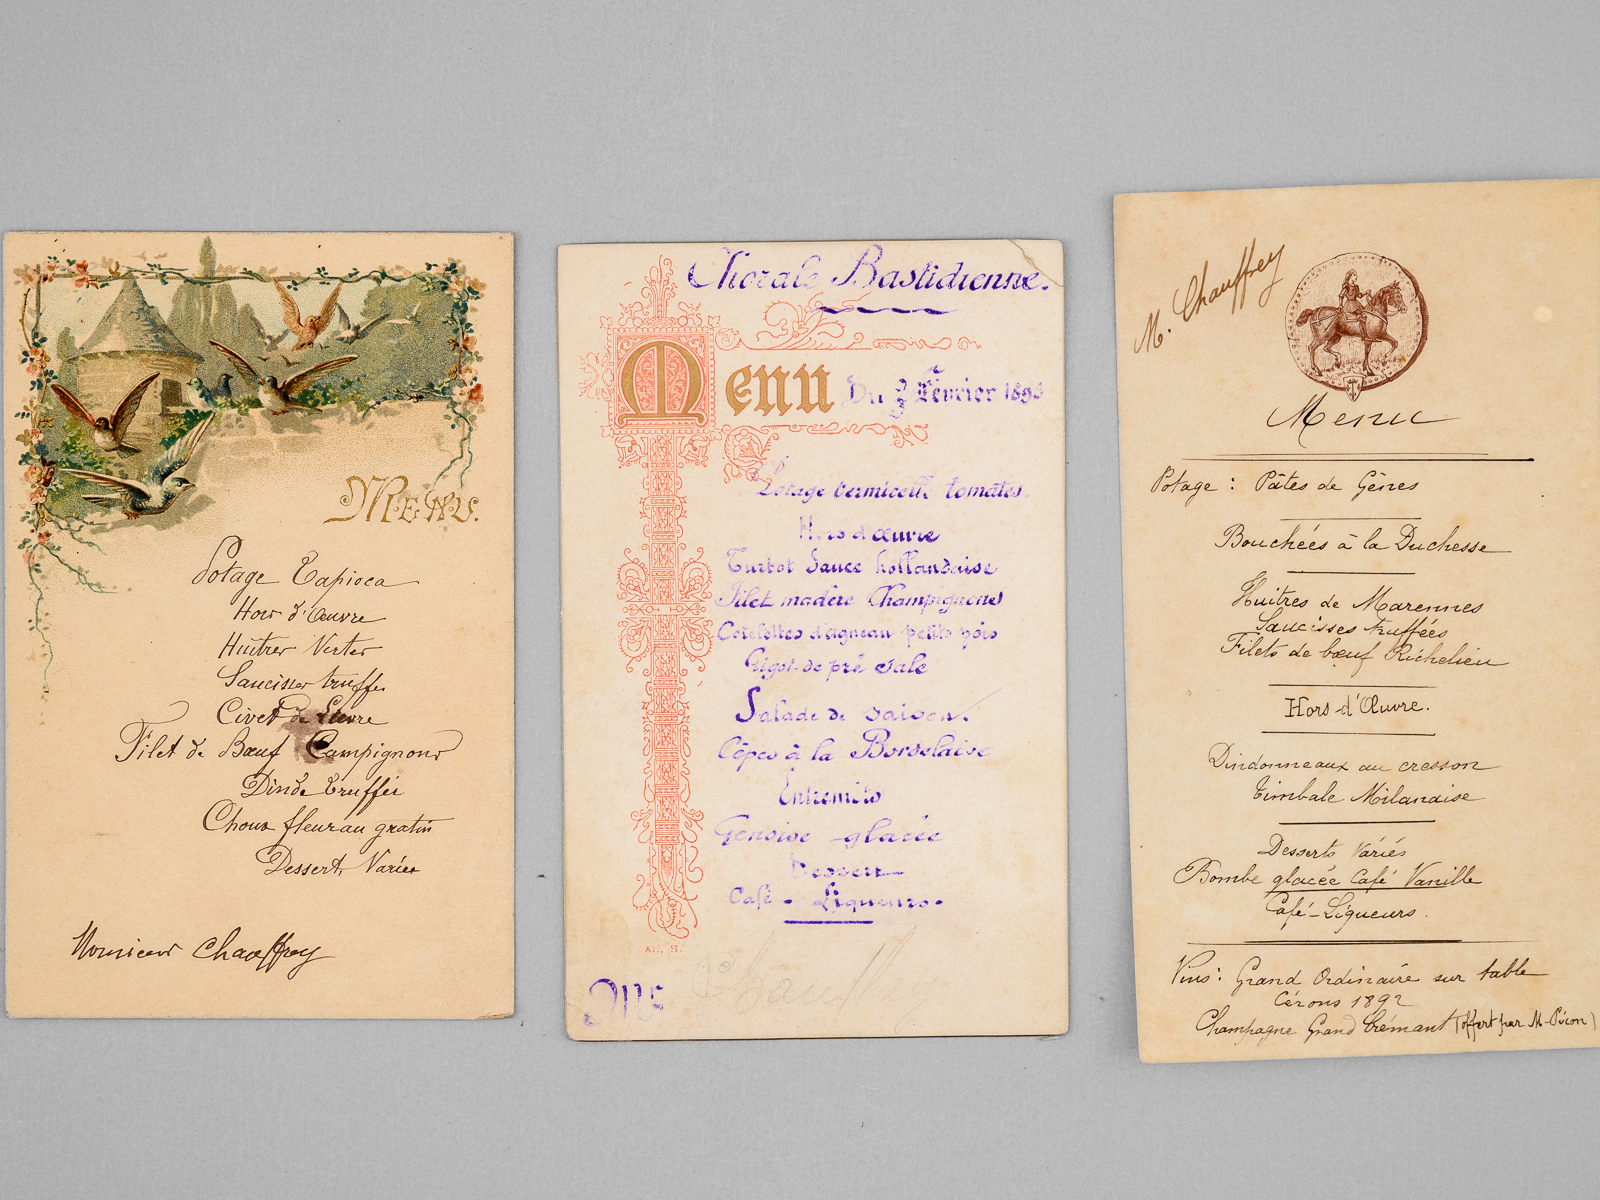 MENU.
Potage Tapioca
Hors d'Œuvre
Huitres Vertes
Saucisses truffes
Civet de Lievre
Filet de Bœuf Campignons
Dinde Truffée
Choux fleur au gratin
Dessert Variés
Monsieur Chauffrey
Chorale Bastidienne.
Menu Du Février
Potage Vermicelle tomates.
Hors d'œuvre
Turbot Sauce hollandaise
Filet madère Champignons
Cotelettes d'agneau petits pois
Gigot de pré Salé
Salade de Saison.
Cêpes à la Bordelaise
Entremêts
Genoise glacée
Dessert
Café - Liqueurs.
Chauffrey
M. Chauffrey
Menu
Potage : Pâtes de Gênes
Bouchées à la Duchesse
Huitres de Marennes
Saucisses truffées
Filets de bœuf Richelieu
Hors-d'Œuvre.
Dindonneaux au cresson
Timbale Milanaise
Desserts Variés
Bombe glacée Café Vanille
Café - Liqueurs.
Vins : Grand Ordinaire sur table
Cérons 1892
Champagne Grand Crémant (offert par M. Picon)